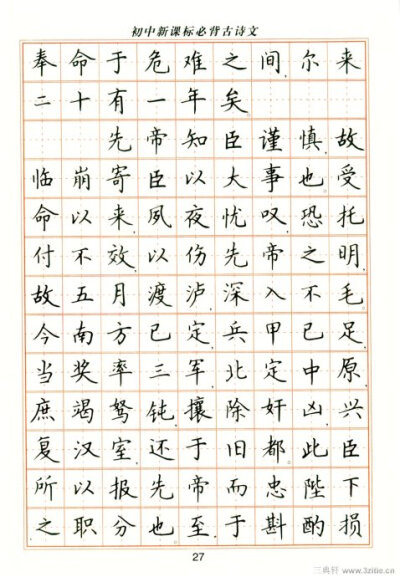 初中新课标必背古诗文
奉命于危难之间,尔来
二十有一年矣。
先帝知臣谨慎,故
临崩寄臣以大事也。受
命以来,夙夜忧叹,恐托
付不效,以伤先帝之明,
故五月渡泸,深入不毛。
今南方已定,兵甲已足,
当奖率三军,北定中原,
庶竭驽钝,攘除奸凶,兴
复汉室,还于旧都。此臣
所以报先帝而忠陛下
之职分也。至于斟酌损
27
三典轩 www.3zitie.cn